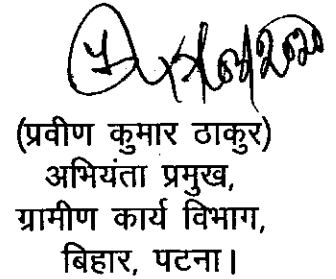 (प्रवीण कुमार ठाकुर)
अभियंता प्रमुख,
ग्रामीण कार्य विभाग,
बिहार, पटना।